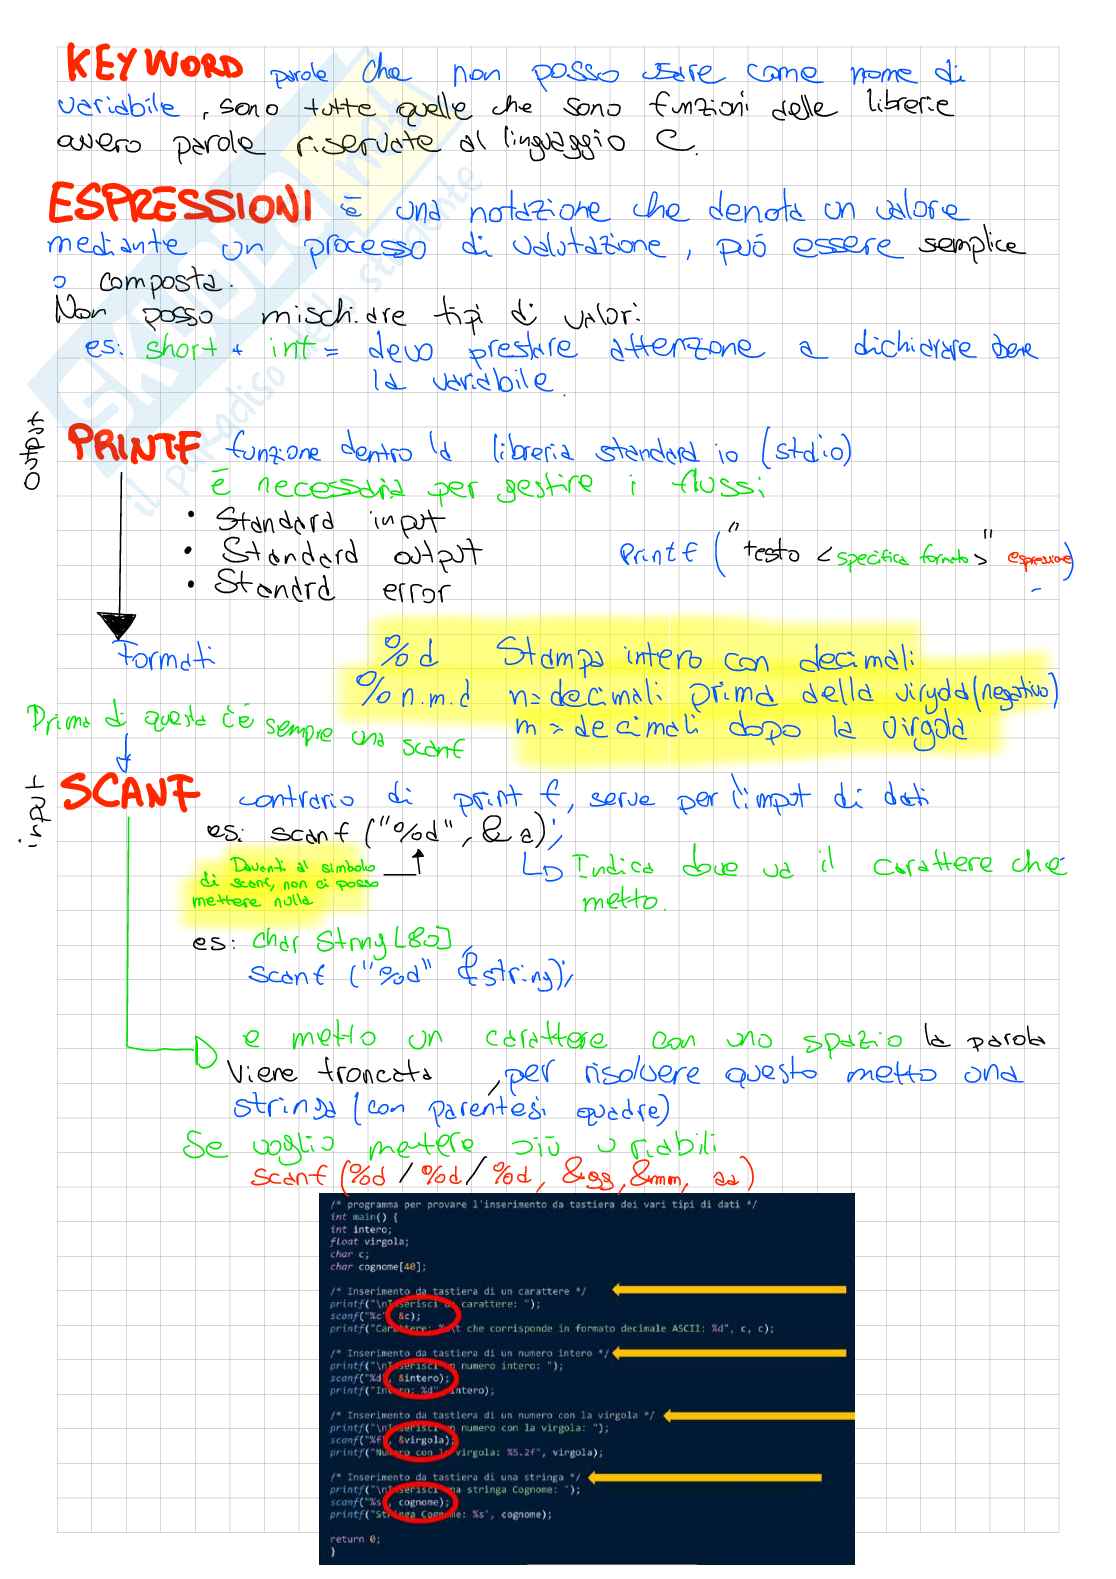 KEYWORD parole che non posso usare come nome di
variabile, sono tutte quelle che sono funzioni delle librerie
ovvero parole riservate al linguaggio C.
ESPRESSIONI è una notazione che denota un valore
mediante un processo di valutazione, può essere semplice
o composta.
Non posso mischiare tipi di valori
es: short + int = devo prestare attenzione a dichiarare bene
la variabile.
Output
PRINTF funzione dentro la libreria standard io (stdio)
È necessaria per gestire i flussi
• Standard input
• Standard output
• Standrd error
Printf ("testo <specifica formato>" espressione)
Formati
%d Stampa intero con decimali
%n.m.d n=decimali prima della virgola (negativo)
m = decimali dopo la virgola
Prima di questa c'è sempre una scanf
SCANF contrario di print f, serve per l'input di dati
es: scanf ("%d", & a);
Davanti al simbolo
di scanf, non ci posso
mettere nulla
Indica dove va il carattere che
metto.
es: char String [80]
scanf ("%d" &string);
e metto un carattere con uno spazio la parola
viene troncata, per risolvere questo metto una
stringa (con parentesi quadre)
Se voglio mettere più variabili
scanf (%d / %d / %d, &gg, &mm, aa)
/* programma per provare l'inserimento da tastiera dei vari tipi di dati */
int main() {
int intero;
float virgola;
char c;
char cognome[40];
/* Inserimento da tastiera di un carattere */
printf("\nInserisci un carattere: ");
scanf("%c", &c);
printf("Carattere: %c\t che corrisponde in formato decimale ASCII: %d", c, c);
/* Inserimento da tastiera di un numero intero */
printf("\nInserisci un numero intero: ");
scanf("%d", &intero);
printf("Intero: %d", intero);
/* Inserimento da tastiera di un numero con la virgola */
printf("\nInserisci un numero con la virgola: ");
scanf("%f", &virgola);
printf("Numero con la virgola: %5.2f", virgola);
/* Inserimento da tastiera di una stringa */
printf("\nInserisci una stringa Cognome: ");
scanf("%s", cognome);
printf("Stringa Cognome: %s", cognome);
return 0;
}